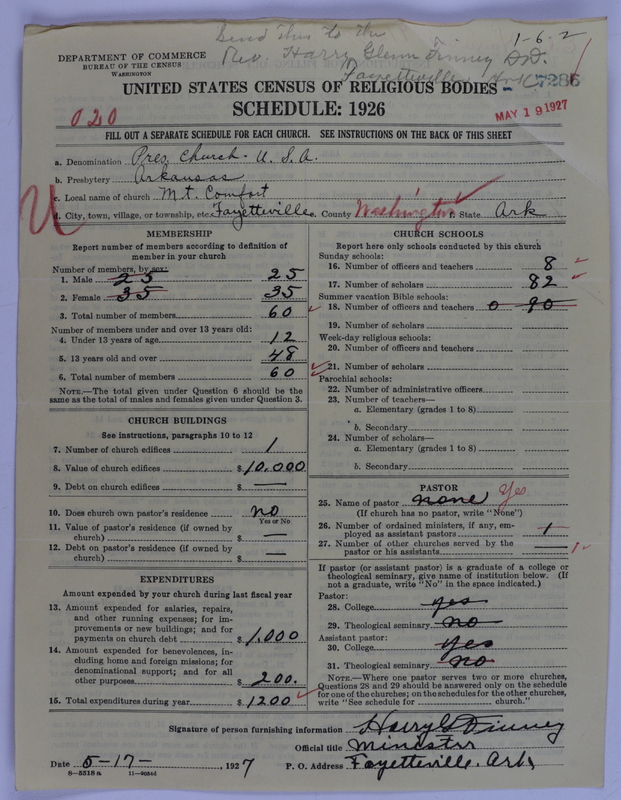 Send this to the
Rev. Harry Glenn Finney D.D.
Fayetteville Ark
1-6-2
7286
MAY 19 1927
DEPARTMENT OF COMMERCE
BUREAU OF THE CENSUS
WASHINGTON
UNITED STATES CENSUS OF RELIGIOUS BODIES
SCHEDULE: 1926
020
FILL OUT A SEPARATE SCHEDULE FOR EACH CHURCH. SEE INSTRUCTIONS ON THE BACK OF THIS SHEET
a. Denomination Pres. Church. U.S.A.
b. Presbytery Arkansas
c. Local name of church Mt. Comfort
d. City, town, village, or township, etc. Fayetteville e. County Washington f. State Ark
MEMBERSHIP
Report number of members according to definition of
member in your church
Number of members, by sex:
1. Male 25 25
2. Female 35 35
3. Total number of members 60
Number of members under and over 13 years old:
4. Under 13 years of age 12
5. 13 years old and over 48
6. Total number of members 60
NOTE.—The total given under Question 6 should be the
same as the total of males and females given under Question 3.
CHURCH BUILDINGS
See instructions, paragraphs 10 to 12
7. Number of church edifices 1
8. Value of church edifices $10,000
9. Debt on church edifices $ —
10. Does church own pastor's residence no
Yes or No
11. Value of pastor's residence (if owned by
church) $ —
12. Debt on pastor's residence (if owned by
church) $ —
EXPENDITURES
Amount expended by your church during last fiscal year
13. Amount expended for salaries, repairs,
and other running expenses; for im-
provements or new buildings; and for
payments on church debt $1,000
14. Amount expended for benevolences, in-
cluding home and foreign missions; for
denominational support; and for all
other purposes $200.
15. Total expenditures during year $1200
CHURCH SCHOOLS
Report here only schools conducted by this church
Sunday schools:
16. Number of officers and teachers 8
17. Number of scholars 82
Summer vacation Bible schools:
18. Number of officers and teachers 0 90
19. Number of scholars
Week-day religious schools:
20. Number of officers and teachers
21. Number of scholars
Parochial schools:
22. Number of administrative officers
23. Number of teachers—
a. Elementary (grades 1 to 8)
b. Secondary
24. Number of scholars—
a. Elementary (grades 1 to 8)
b. Secondary
PASTOR
25. Name of pastor none Yes
(If church has no pastor, write "None")
26. Number of ordained ministers, if any, em-
ployed as assistant pastors 1
27. Number of other churches served by the
pastor or his assistants — 1
If pastor (or assistant pastor) is a graduate of a college or
theological seminary, give name of institution below. (If
not a graduate, write "No" in the space indicated.)
Pastor:
28. College yes
29. Theological seminary no
Assistant pastor:
30. College yes
31. Theological seminary no
NOTE.—Where one pastor serves two or more churches,
Questions 28 and 29 should be answered only on the schedule
for one of the churches; on the schedules for the other churches,
write "See schedule for church."
Signature of person furnishing information Harry G Finney
Official title Minister
Date 5-17-, 1927 P. O. Address Fayetteville. Ark
8-5518 a